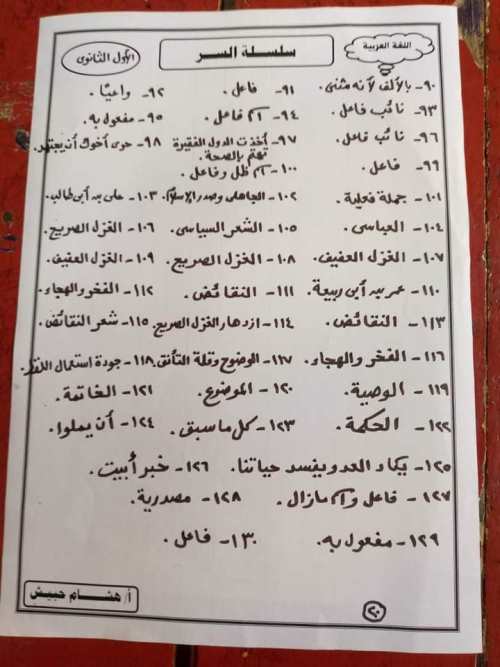 اللغة العربية
سلسلة السر
الأول الثانوى
٩٠- بالألف لأنه مثنى. ٩١- فاعل. ٩٢- واعيًا.
٩٣- نائب فاعل. ٩٤- اسم فاعل. ٩٥- مفعول به.
٩٦- نائب فاعل. ٩٧- أخذت الدول الفقيرة تهتم بالصحة. ٩٨- حرى أخوك أن يجتهد.
٩٩- فاعل. ١٠٠- اسم ظل وفاعل.
١٠١- جملة فعلية. ١٠٢- الجاهلى وصدر الإسلام. ١٠٣- على بن أبى طالب.
١٠٤- العباسى. ١٠٥- الشعر السياسى. ١٠٦- الغزل الصريح.
١٠٧- الغزل العفيف. ١٠٨- الغزل الصريح. ١٠٩- الغزل العفيف.
١١٠- عمر بن أبى ربيعة. ١١١- النقائض. ١١٢- الفخر والهجاء.
١١٣- النقائض. ١١٤- ازدهار الغزل الصريح. ١١٥- شعر النقائض.
١١٦- الفخر والهجاء. ١١٧- الوضوح وقلة التأنق. ١١٨- جودة استعمال اللفظ.
١١٩- الوصية. ١٢٠- الموضوع. ١٢١- الخاتمة.
١٢٢- الحكمة. ١٢٣- كل ما سبق. ١٢٤- أن يملوا.
١٢٥- يكاد العدو يفسد حياتنا. ١٢٦- خبر أبيت.
١٢٧- فاعل واسم مازال. ١٢٨- مصدرية.
١٢٩- مفعول به. ١٣٠- فاعل.
أ/ هشام حبيش
٢٠